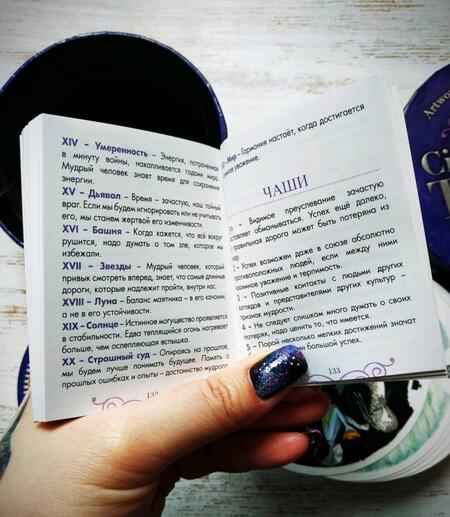 XIV – Умеренность – Энергия, потраченная
в минуту войны, накапливается годами мира.
Мудрый человек знает время для сохранения
энергии.
XV – Дьявол – Время – зачастую, наш тайный
враг. Если мы будем игнорировать или не учитывать
его, мы станем жертвой его изменчивости.
XVI – Башня – Когда кажется, что всё вокруг
рушится, надо думать о том зле, которое мы
избежали.
XVII – Звезды – Мудрый человек, который
привык смотреть вперед, знает, что самые длинные
дороги, которые надлежит пройти, внутри нас.
XVIII – Луна – Баланс маятника – в его качании,
а не в его устойчивости.
XIX – Солнце – Истинное могущество проявляется
в стабильности. Едва теплящийся огонь нагревает
больше, чем ослепляющая вспышка.
XX – Страшный суд – Опираясь на прошлое,
мы будем лучше понимать будущее. Память о
прошлых ошибках и опыты – достоинство мудрого.
132
– Мир – Гармония настаёт, когда достигается
уважение.
ЧАШИ
– Видимое преуспевание зачастую
обманываться. Успех ещё далеко,
дорога может быть потеряна из
– Успех возможен даже в союзе абсолютно
людей, если между ними
уважение и терпимость.
– Позитивные контакты с людьми других
и представителями других культур –
мудрости.
4 – Не следует слишком много думать о своих
потерях, надо ценить то, что имеется.
5 – Порой несколько мелких достижений значат
большой успех.
133
Artwor
Ci
T